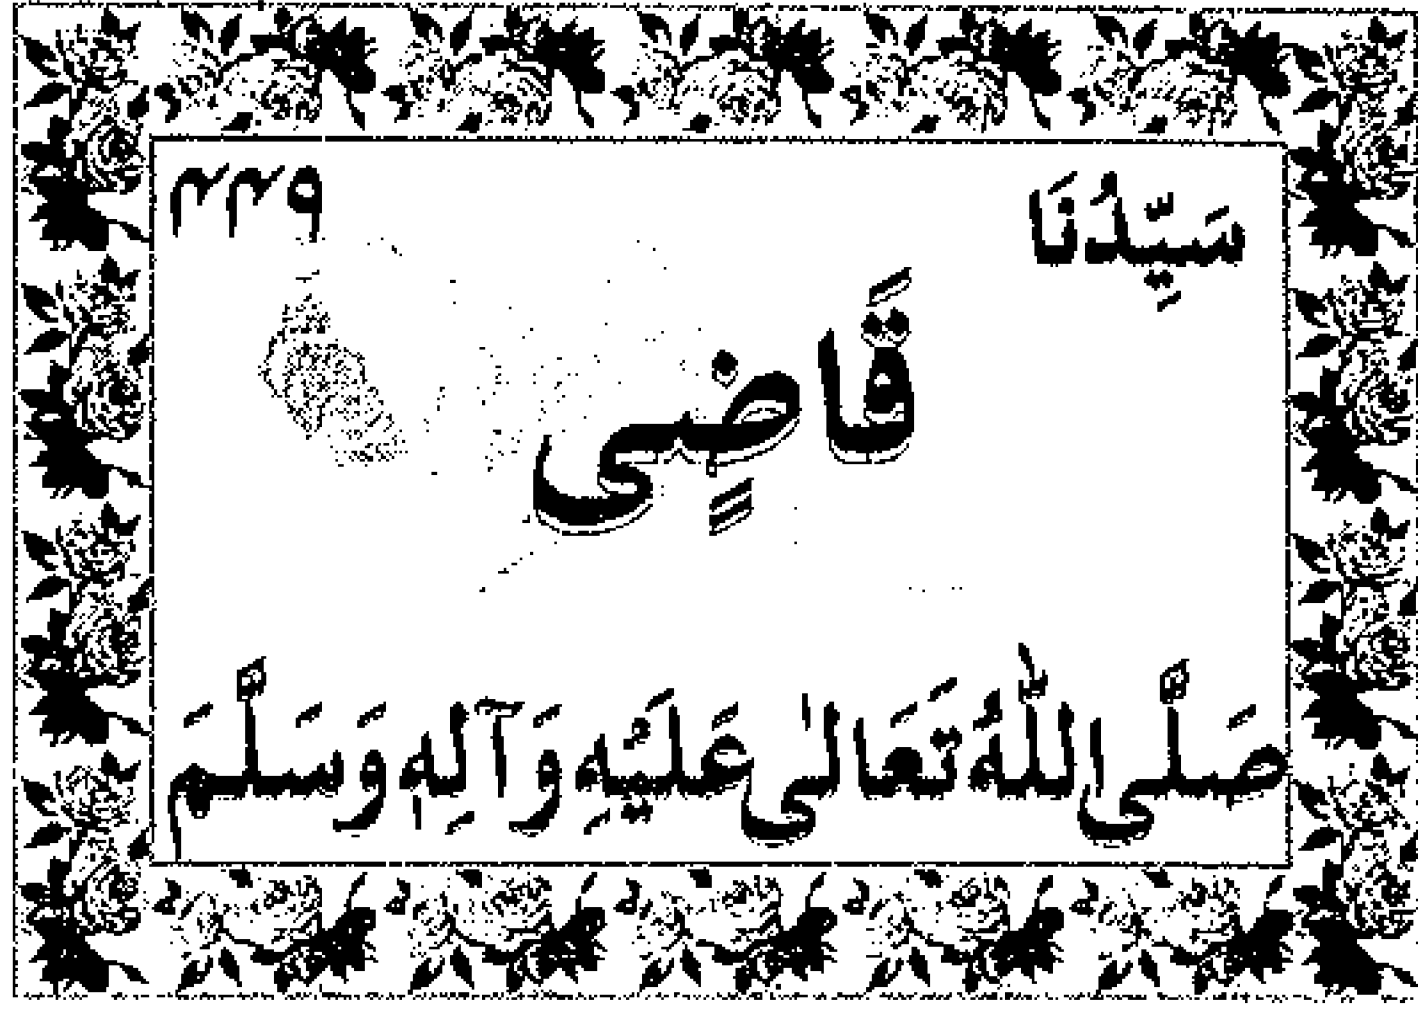 سَيِّدُنَا ٢٢٩
قَاضٍى
صَلَّى اللّٰهُ تَعَالٰى عَلَيْهِ وَآلِهٖ وَسَلَّمَ